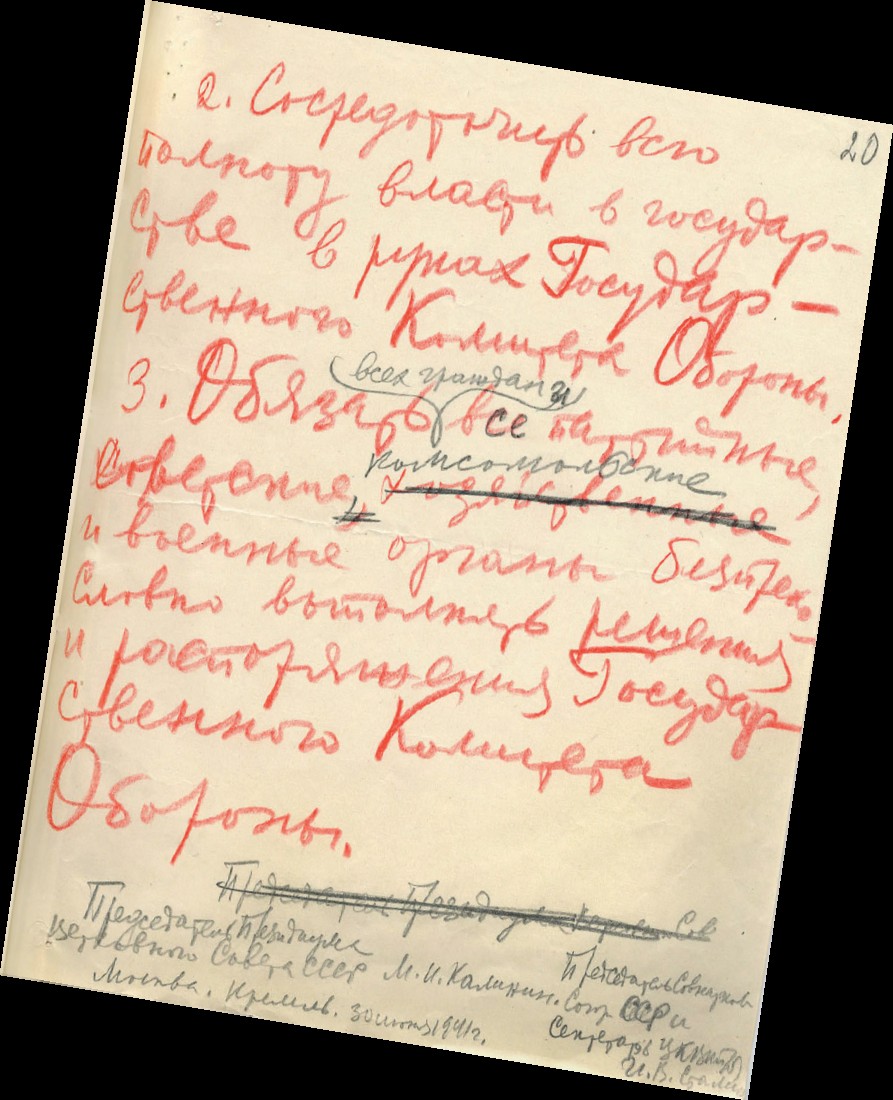 20
2. Сосредоточить всю
полноту власти в государ-
стве в руках Государ-
ственного Комитета Обороны.
всех граждан и
3. Обязать все партийные,
комсомольские
советские, хозяйственные
и военные органы безпреко-
словно выполнять решения
и распоряжения Государ-
ственного Комитета
Обороны.
Председатель Президиума Верховн. Сов
Председатель Президиума
Верховного Совета СССР М.И. Калинин.
Москва. Кремль. 30 июня 1941 г.
Председатель Совнаркома
Союза ССР и
Секретарь ЦК ВКП(б)
И. В. Сталин